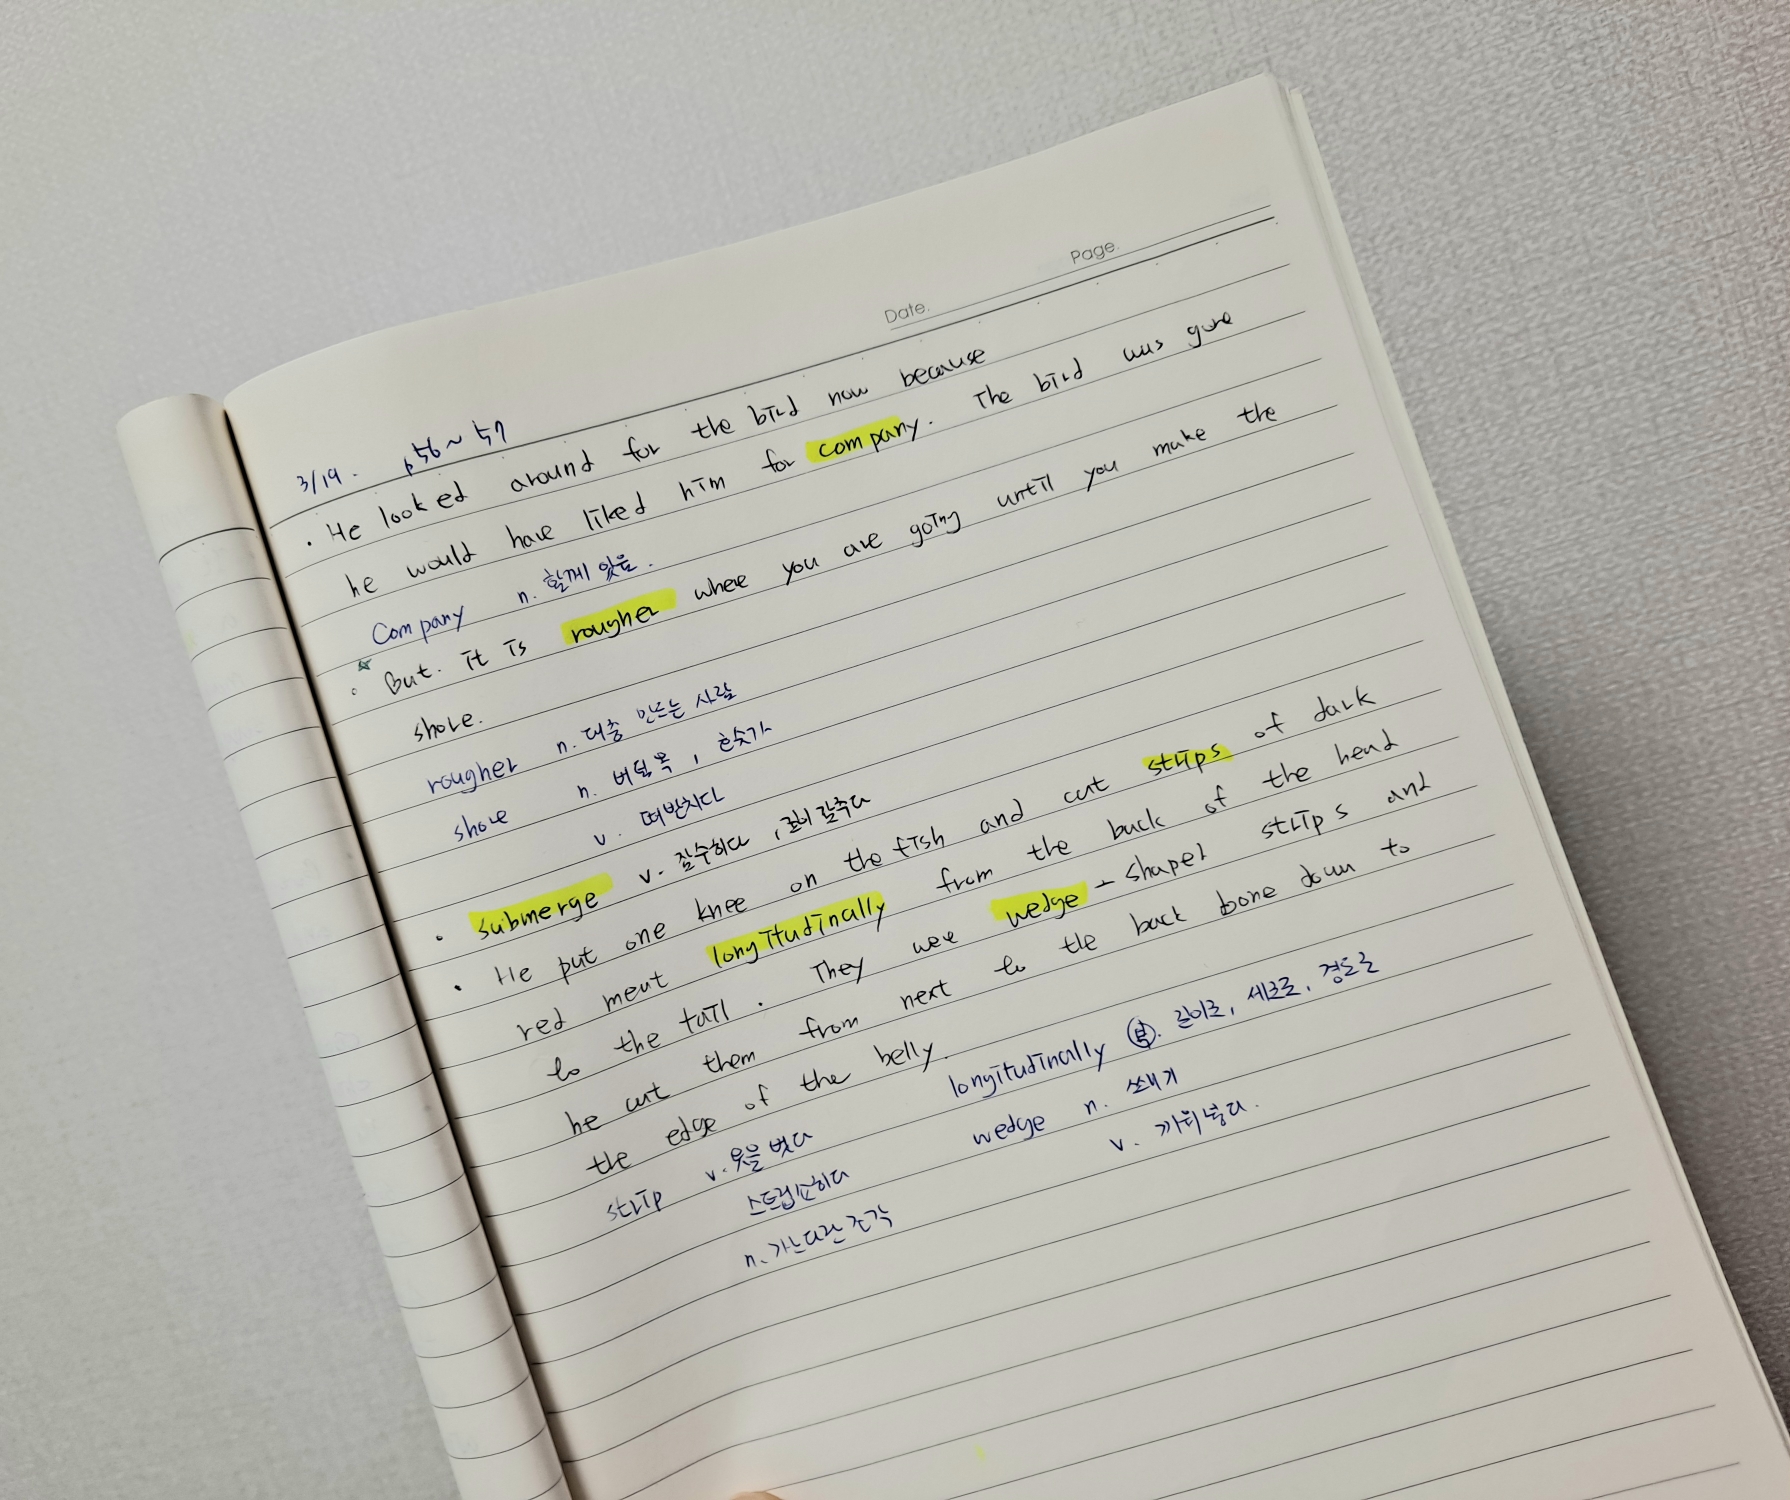 Page.
Date.
3/19. p56~57
· He looked around for the bird now because
he would have liked him for company. The bird was gone
Company n. 함께 있음.
· But. it is rougher where you are going until you make the
shore.
rougher n. 대충 만드는 사람
shore n. 버팀목, 호숫가
v. 떠받치다
· submerge v. 잠수하다, 깊이 감추다
· He put one knee on the fish and cut strips of dark
red meat longitudinally from the back of the head
to the tail. They were wedge-shaped strips and
he cut them from next to the back bone down to
the edge of the belly.
longitudinally 부. 길이로, 세로로, 경도로
strip v. 옷을 벗다
wedge n. 쐐기
스트립쇼하다
v. 끼워넣다.
n. 가느다란 조각